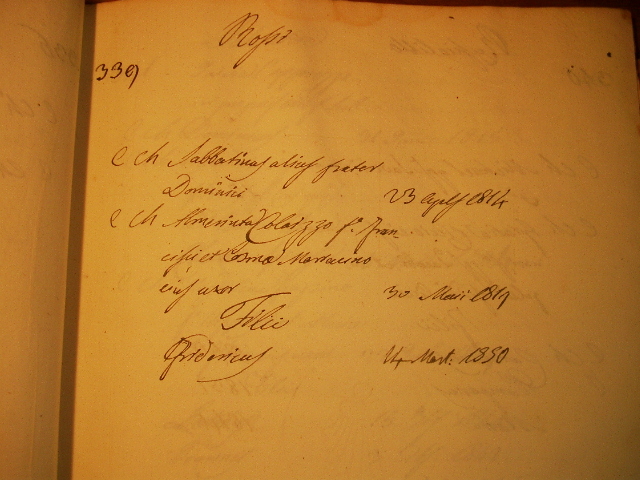 Rossi
339
e ch Sabbatinus alius frater
Dominici 23 Aplis 1814
e ch Almerinta Colaizzo f. Fran-
cisci et Cosma Marracino
eius uxor 30 Maii 1819
Filii
Fridericus 14 Mart: 1850